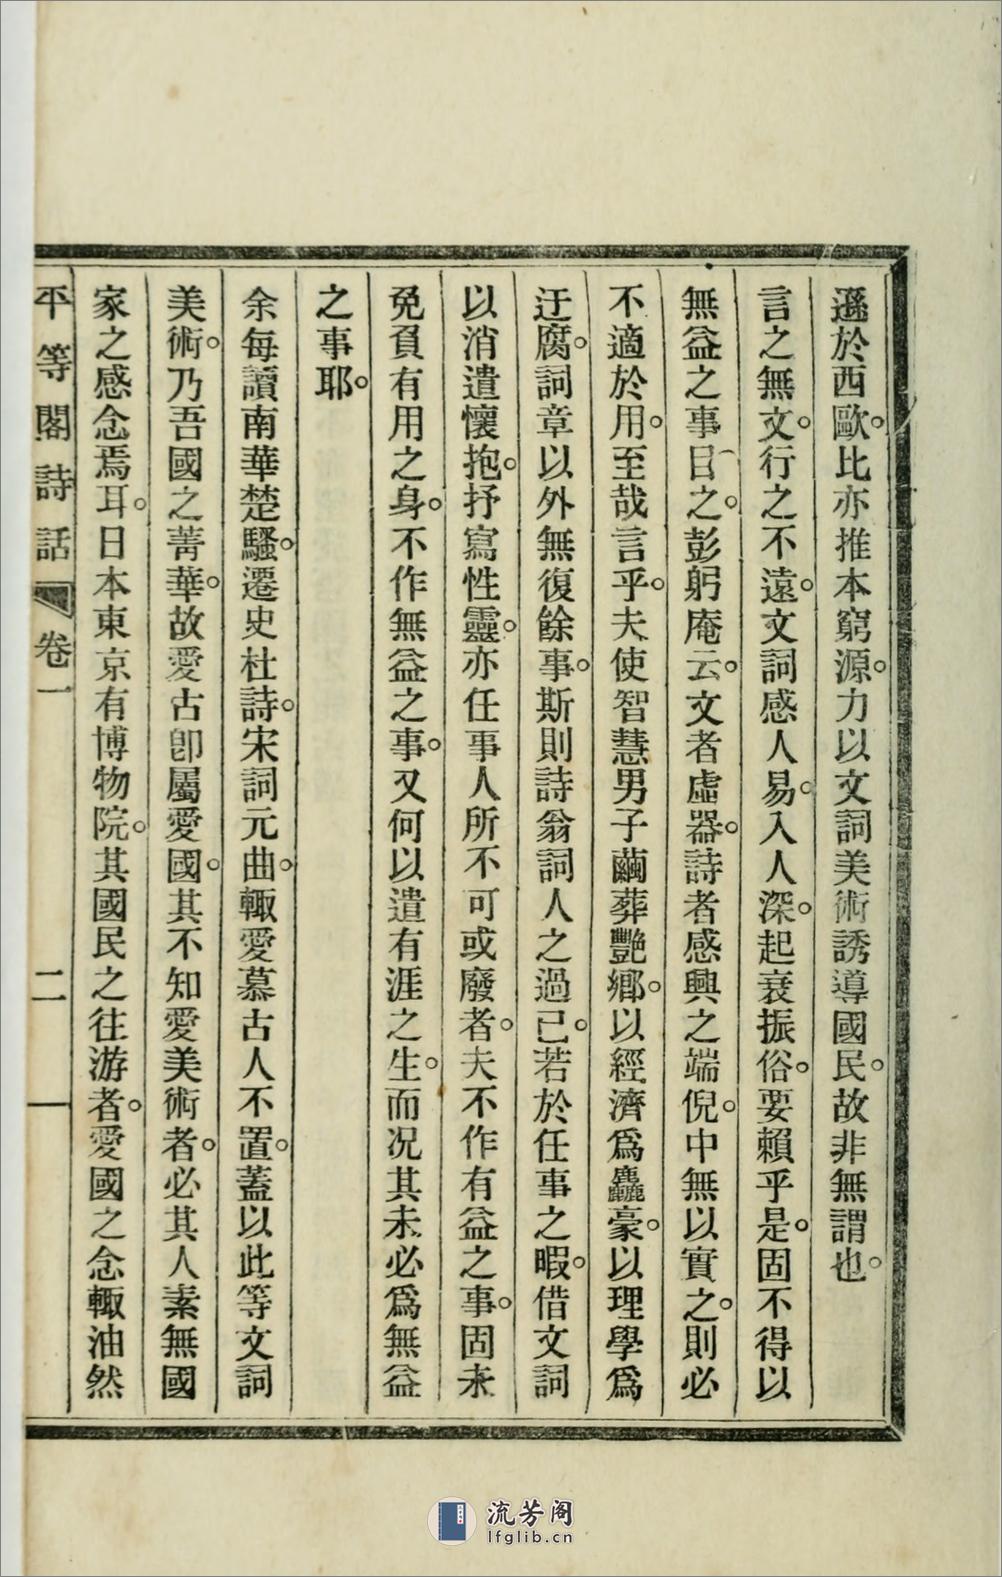 遜於西歐。比亦推本窮源。力以文詞美術誘導國民。故非無謂也。
言之無文。行之不遠。文詞感人易。入人深。起衰振俗。要賴乎是。固不得以
無益之事目之。彭躬庵云。文者虛器。詩者感興之端倪。中無以實之。則必
不適於用。至哉言乎。夫使智慧男子繭葬艷鄉。以經濟爲麤豪。以理學爲
迂腐。詞章以外無復餘事。斯則詩翁詞人之過已。若於任事之暇。借文詞
以消遣懷抱。抒寫性靈。亦任事人所不可或廢者。夫不作有益之事。固未
免負有用之身。不作無益之事。又何以遣有涯之生。而况其未必爲無益
之事耶。
余每讀南華楚騷。遷史杜詩。宋詞元曲。輙愛慕古人不置。蓋以此等文詞
美術。乃吾國之菁華。故愛古卽屬愛國。其不知愛美術者。必其人素無國
家之感念焉耳。日本東京有博物院。其國民之往游者。愛國之念輙油然
平等閣詩話 卷一 二
流芳阁
lfglib.cn